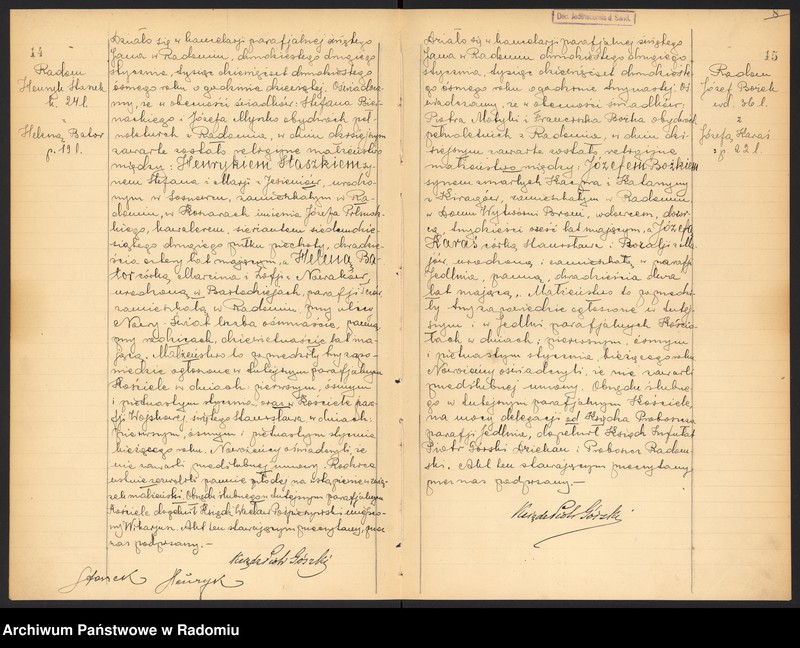 Dec. Jedlnia
8
14
Radom
Henryk Stanek
k. 24 l.
Helena Bator
p. 19 l.
Działo się w kancelarji parafjalnej świętego
Jana w Radomiu, dwudziestego drugiego
stycznia, tysiąc dziewięćset dwudziestego
ósmego roku o godzinie dziesiątej. Oświadcza-
my, że w obecności świadków: Stefana
i Józefa obydwóch peł-
noletnich z Radomia, w dniu dzisiejszym
zawarte zostało religijne małżeństwo
między: Henrykiem Staszkiem sy-
nem Stefana i Marji z urodzo-
nym w Sosnowcu, zamieszkałym w Ra-
domiu, w Koszarach imienia Józefa
kawalerem, sierżantem siedemdzie-
siątego drugiego pułku piechoty, dwadzie-
ścia cztery lat mającym, a Heleną Ba-
tor córką Marcina i Zofji z Nowaków,
urodzoną w Bartodziejach, parafji
zamieszkałą w Radomiu, przy ulicy
Nowy-Świat liczba ośmnaście, panną
przy rodzicach, dziewiętnaście lat ma-
jącą. Małżeństwo to poprzedziły trzy zapo-
wiedzie ogłoszone w tutejszym parafjalnym
Kościele w dniach: pierwszym, ósmym
i piętnastym stycznia oraz w Kościele para-
fji Wojskowej, świętego Stanisława w dniach:
pierwszym, ósmym i piętnastym stycznia
bieżącego roku. Nowożeńcy oświadczyli, że
nie zawarli przedślubnej umowy. Rodzice
ustnie zezwolili pannie młodej na wstąpienie w zwią-
zek małżeński. Obrzędu ślubnego w tutejszym parafjalnym
Kościele dopełnił Ksiądz Wacław miejsco-
wy Wikarjusz. Akt ten stawającym przeczytany, przez
nas podpisany.—
Ksiądz Piotr Górski
Stanek Henryk
Działo się w kancelarji parafjalnej świętego
Jana w Radomiu dwudziestego drugiego
stycznia, tysiąc dziewięćset dwudzieste-
go ósmego roku o godzinie Oś-
wiadczamy, że w obecności świadków:
Piotra i Franciszka obydwóch
pełnoletnich z Radomia, w dniu dzi-
siejszym zawarte zostało religijne
małżeństwo między: Józefem Bożkiem
synem zmarłych i Katarzyny
z zamieszkałym w Radomiu
w Domu Wytwórni Broni, wdowcem,
trzydzieści sześć lat mającym, a Józefą
Karaś córką Stanisława i Rozalji z
urodzoną i zamieszkałą w parafji
Jedlnia, panną, dwadzieścia dwa
lat mającą. Małżeństwo to poprzedzi-
ły trzy zapowiedzie ogłoszone w tutej-
szym i w Jedlni parafjalnych Kościo-
łach w dniach: pierwszym, ósmym
i piętnastym stycznia, bieżącego roku
Nowożeńcy oświadczyli, że nie zawarli
przedślubnej umowy. Obrzędu ślubne-
go w tutejszym parafjalnym Kościele,
na mocy delegacji od Księdza Proboszcza
parafji Jedlnia, dopełnił Ksiądz Infułat
Piotr Górski Dziekan i Proboszcz Radom-
ski. Akt ten stawającym przeczytany
przez nas podpisany.—
Ksiądz Piotr Górski
15
Radom
Józef Bożek
wd. 36 l.
z
Józefą Karaś
p. 22 l.
Archiwum Państwowe w Radomiu